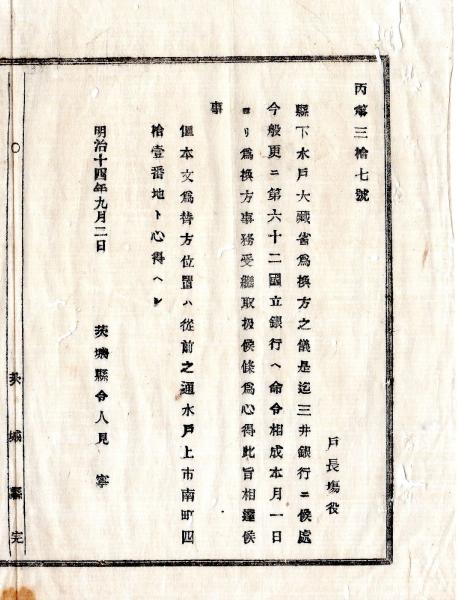 丙第三拾七號
戸長塲役
縣下水戸大藏省爲換方之儀是迄三井銀行ニ候處
今般更ニ第六十二國立銀行ヘ命令相成本月一日
ヨリ爲換方事務受繼取扱候條爲心得此旨相達候
事
但本文爲替方位置ハ從前之通水戸上市南町四
拾壹番地ト心得ヘシ
明治十四年九月二日
茨城縣令人見寧
茨城縣完